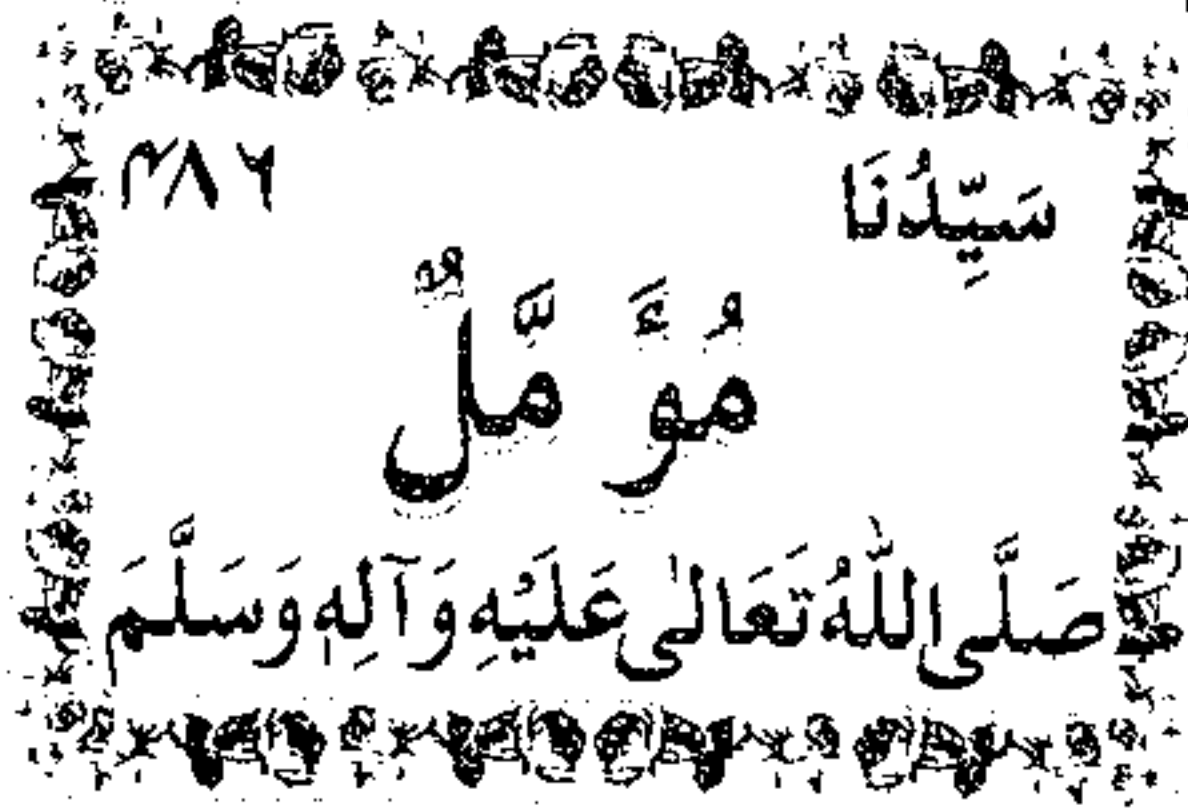 سَيِّدُنَا ۴۸۶
مُؤَمَّلٌ
صَلَّى اللّٰهُ تَعَالٰى عَلَيْهِ وَآلِهٖ وَسَلَّمَ